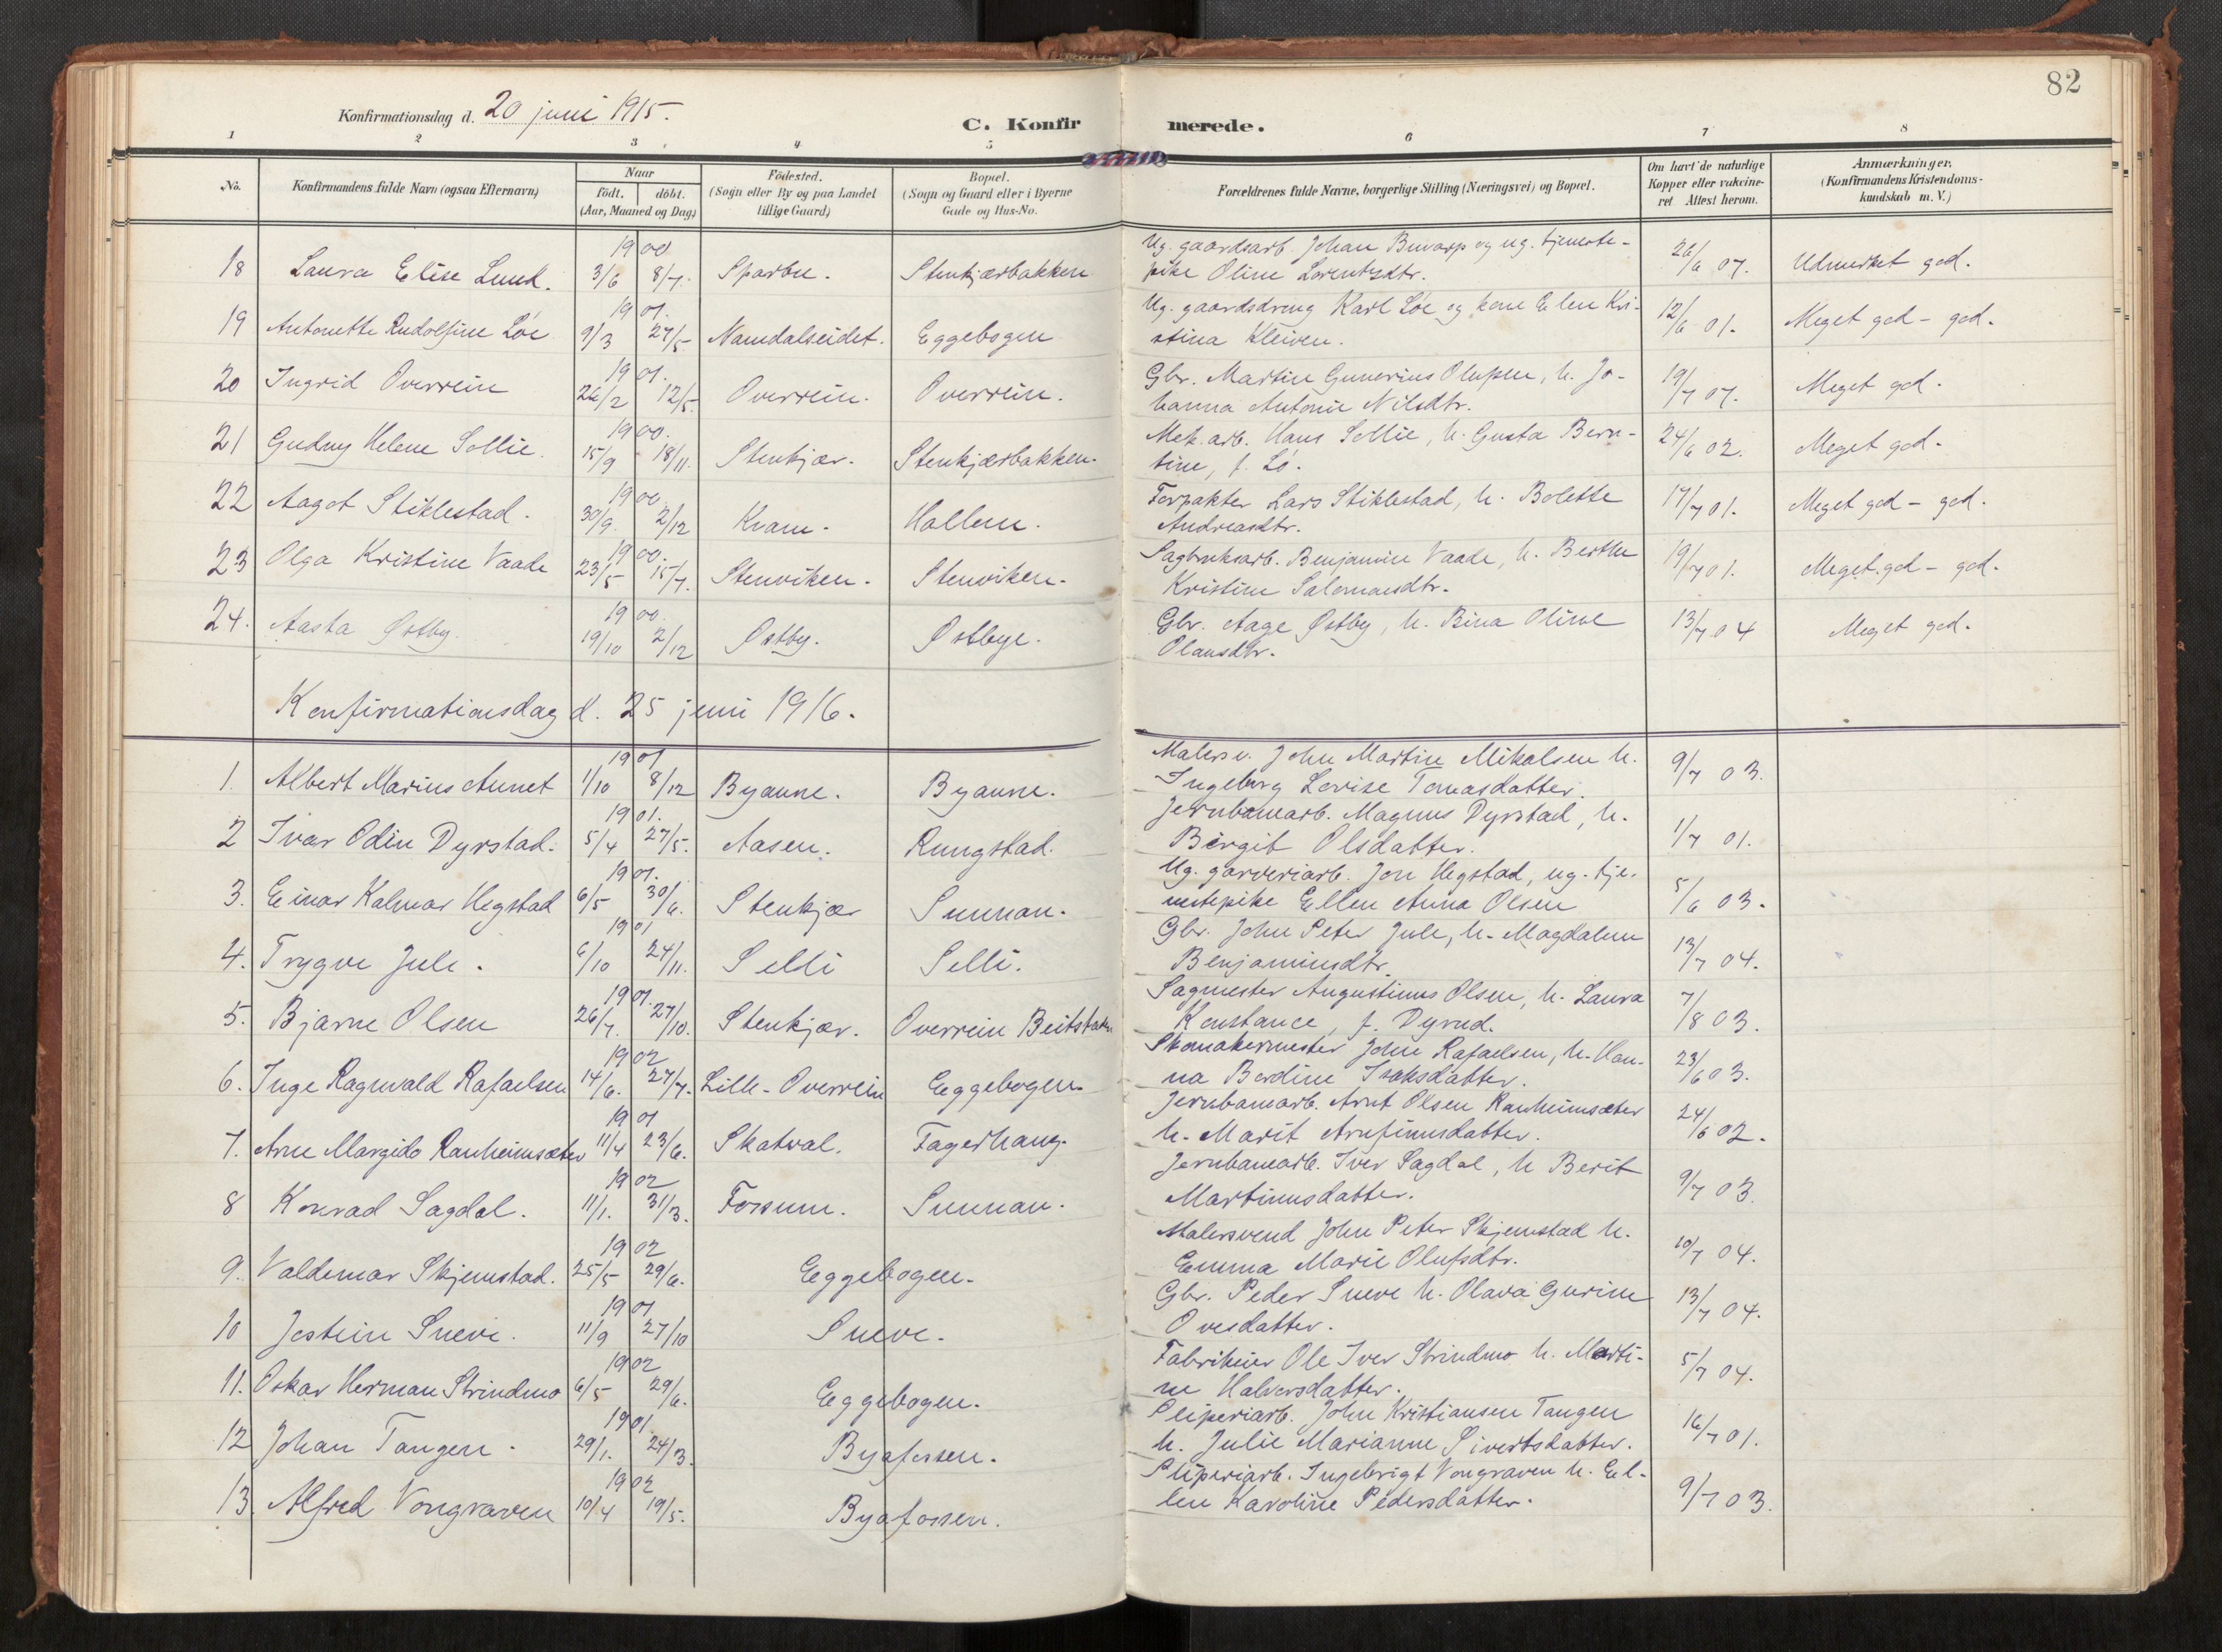 82
Konfirmationsdag d. 20 juni 1915.
C. Konfirmerede.
1 2 3 4 5 6 7 8
No. Konfirmandens fulde Navn (ogsaa Efternavn) Naar født. døbt. (Aar, Maaned og Dag) Födested. (Sogn eller By og paa Landet tillige Gaard) Bopæl. (Sogn og Gaard eller i Byerne Gade og Hus-No. Forældrenes fulde Navne, borgerlige Stilling (Næringsvei) og Bopæl. Om havt de naturlige Kopper eller vakcineret Attest herom. Anmærkninger. (Konfirmandens Kristendomskundskab m. V.)
18 Laura Elise Lund. 1900 3/6 8/7. Sparbu. Stenkjærbakken Ug. gaardsarb. Johan Buvarp og ug. tjeneste-
pike Oline Lorentsdtr. 26/6 07. Udmerket gd.
19 Antonette Rudolfine Løe 1901. 9/3 27/5 Namdalseidet. Eggebogen Ug. gaardsdreng Karl Løe og kone Elen Kri-
stina Kleiven. 12/6 01. Meget gd - gd.
20 Ingrid Overrein 1901. 26/2 12/5. Overrein. Overrein. Gbr. Martin Gunerius Olufsen, h. Jo-
hanna Antonie Nilsdtr. 19/7 07. Meget gd.
21 Gudny Helene Sollie. 1900. 15/9 18/11. Stenkjær. Stenkjærbakken. Mek. arb. Hans Sollie, h. Gusta Bern-
tine, f. Lø. 24/6 02. Meget gd.
22 Aagot Stiklestad. 1900 30/9. 2/12 Kvam. Hallem. Forpakter Lars Stiklestad, h. Bolette
Andreasdtr. 17/7 01. Meget gd - gd.
23 Olga Kristine Vaade 1900. 23/5 15/7. Stenviken. Stenviken. Sagbruksarb. Benjamin Vaade, h. Berthe
Kristine Salomonsdtr. 19/7 01. Meget gd - gd.
24. Aasta Østby. 1900. 19/10 2/12 Østby. Østbye. Gbr. Aage Østby, h. Bina Oline
Olausdtr. 13/7 04 Meget gd.
Konfirmationsdag d. 25 juni 1916.
1. Albert Marius Aunet 1901 1/10 8/12 Byaunne. Byaunne. Malersv. John Martin Mikalsen h.
Ingeborg Lovise Tomasdatter. 9/7 03.
2 Ivar Odin Dyrstad. 1901. 5/4 27/5. Aasen. Rungstad. Jernbanearb. Magnus Dyrstad, h.
Birgit Olsdatter. 1/7 01.
3. Einar Kalmar Hegstad 1901. 6/5 30/6. Stenkjær Sunnan. Ug. garveriarb. Jon Hegstad, ug. tje-
nestepike Ellen Anna Olsen 5/6 03.
4. Trygve Jule. 1901 6/10 24/11. Selli Selli. Gbr. John Peter Jule, h. Magdalena
Benjaminsdtr. 13/7 04.
5. Bjarne Olsen 1901. 26/7. 27/10. Stenkjær. Overrein Beitstaden Sagmester Augustinus Olsen, h. Laura
Konstance, f. Dyrud. 7/8 03.
6. Inge Ragnvald Rafaelsen 1902 14/6. 27/7. Lille-Overrein Eggebogen. Skomakermester John Rafaelsen, h. Han-
na Berdine Isaksdatter. 23/6 03.
7. Arne Margido Ranheimsæter 1901 11/4 23/6. Skatval. Fagerhaug. Jernbanearb. Arnt Olsen Ranheimsæter
h. Marit Arnfinnsdatter. 24/6 02.
8 Konrad Sagdal. 1902 11/1. 31/3. Forsum. Sunnan. Jernbanearb. Iver Sagdal, h Berit
Martinusdatter. 9/7 03.
9. Valdemar Skjemstad. 1902 25/5 29/6. Eggebogen. Malersvend John Peter Skjemstad h.
Emma Marie Olufsdtr. 10/7 04.
10 Jostein Sneve. 1901 11/9 27/10 Sneve. Gbr. Peder Sneve h. Olava Gurine
Ovesdatter. 13/7 04.
11. Oskar Herman Strindmo 1902 6/5 29/6. Eggebogen. Fabrikeier Ole Iver Strindmo h. Marti-
ne Halvorsdatter. 5/7 04.
12 Johan Tangen. 1901. 29/1. 24/3. Byafossen. Sliperiarb. John Kristiansen Tangen
h. Julie Marianne Sivertsdatter. 16/7 01.
13. Alfred Vongraven 1902 10/4 19/5. Byafossen. Sliperiarb. Ingebrigt Vongraven h. El-
len Karoline Pedersdatter. 9/7 03.